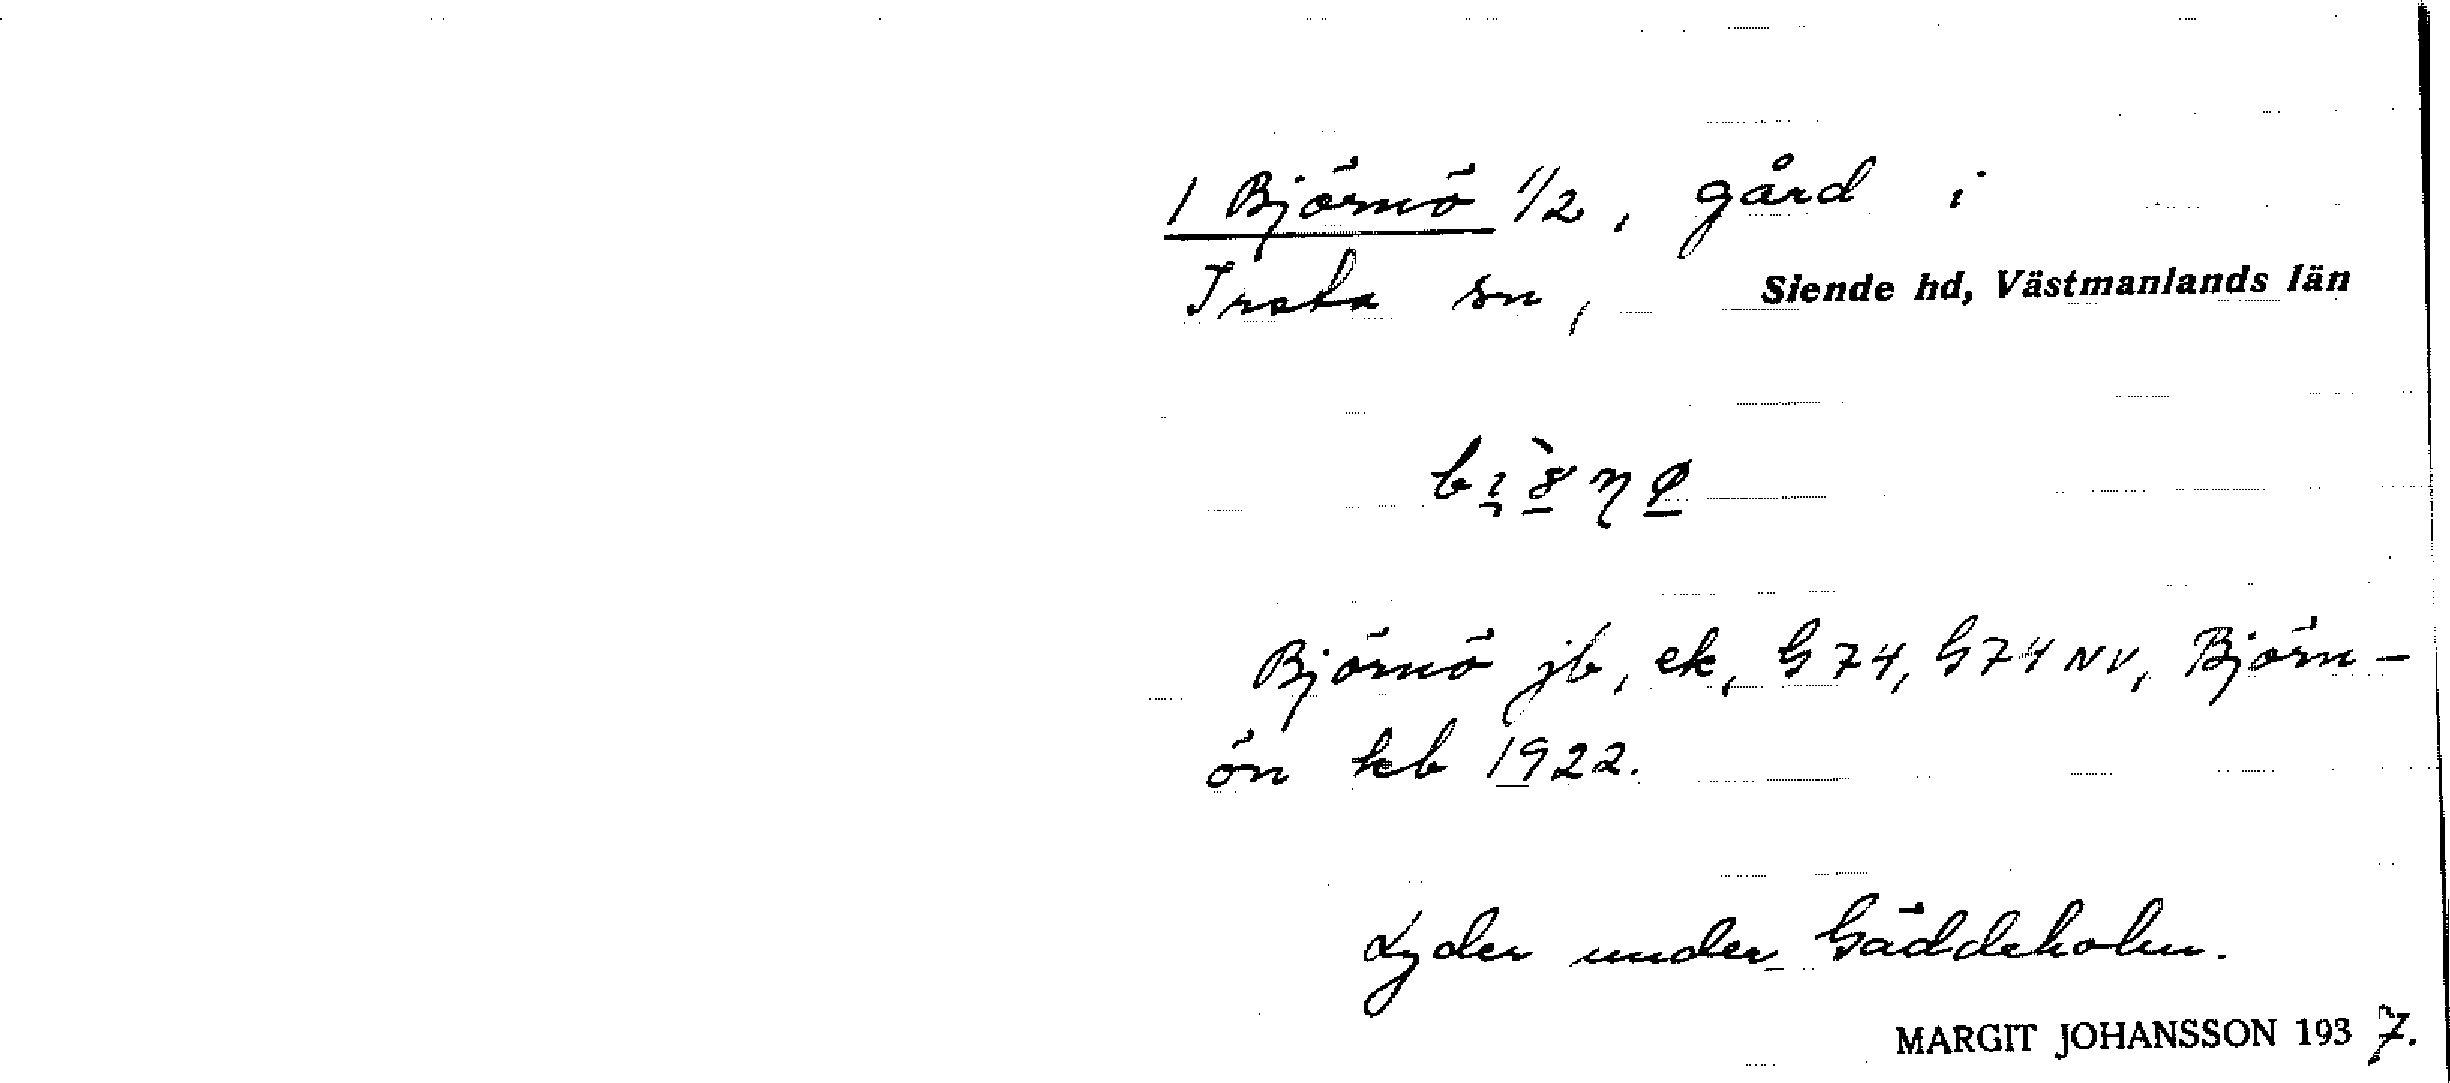 1 Björnö 1/2, gård i
Irsta sn, Siende hd, Västmanlands län
Björnö jb, ek, G 74, G 74 NV, Björn-
ön kb 1922.
Lyder under Gäddeholm.
MARGIT JOHANSSON 1937.